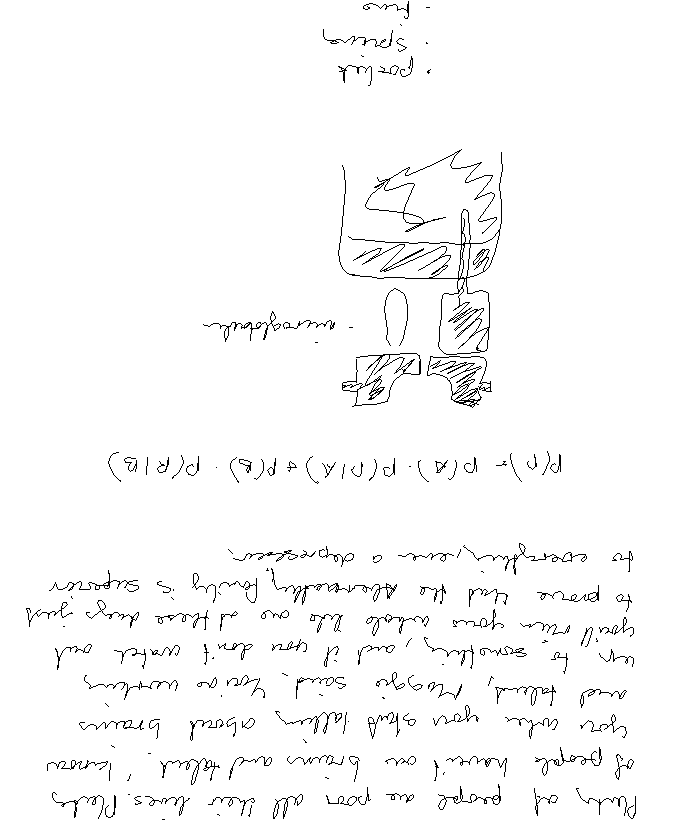 Plenty of people are poor all their lives. Plenty
of people haven't our brains and talent. I know
you when you start talking about brains
and talent, Maggie said. You're working
up to something, and if you don't watch out
you'll ruin your whole life one of these days just
to prove that the Abernathy family is superior
to everything, even a depression.
P(R) = P(A) · P(R|A) + P(B) · P(R|B)
- microglobulin